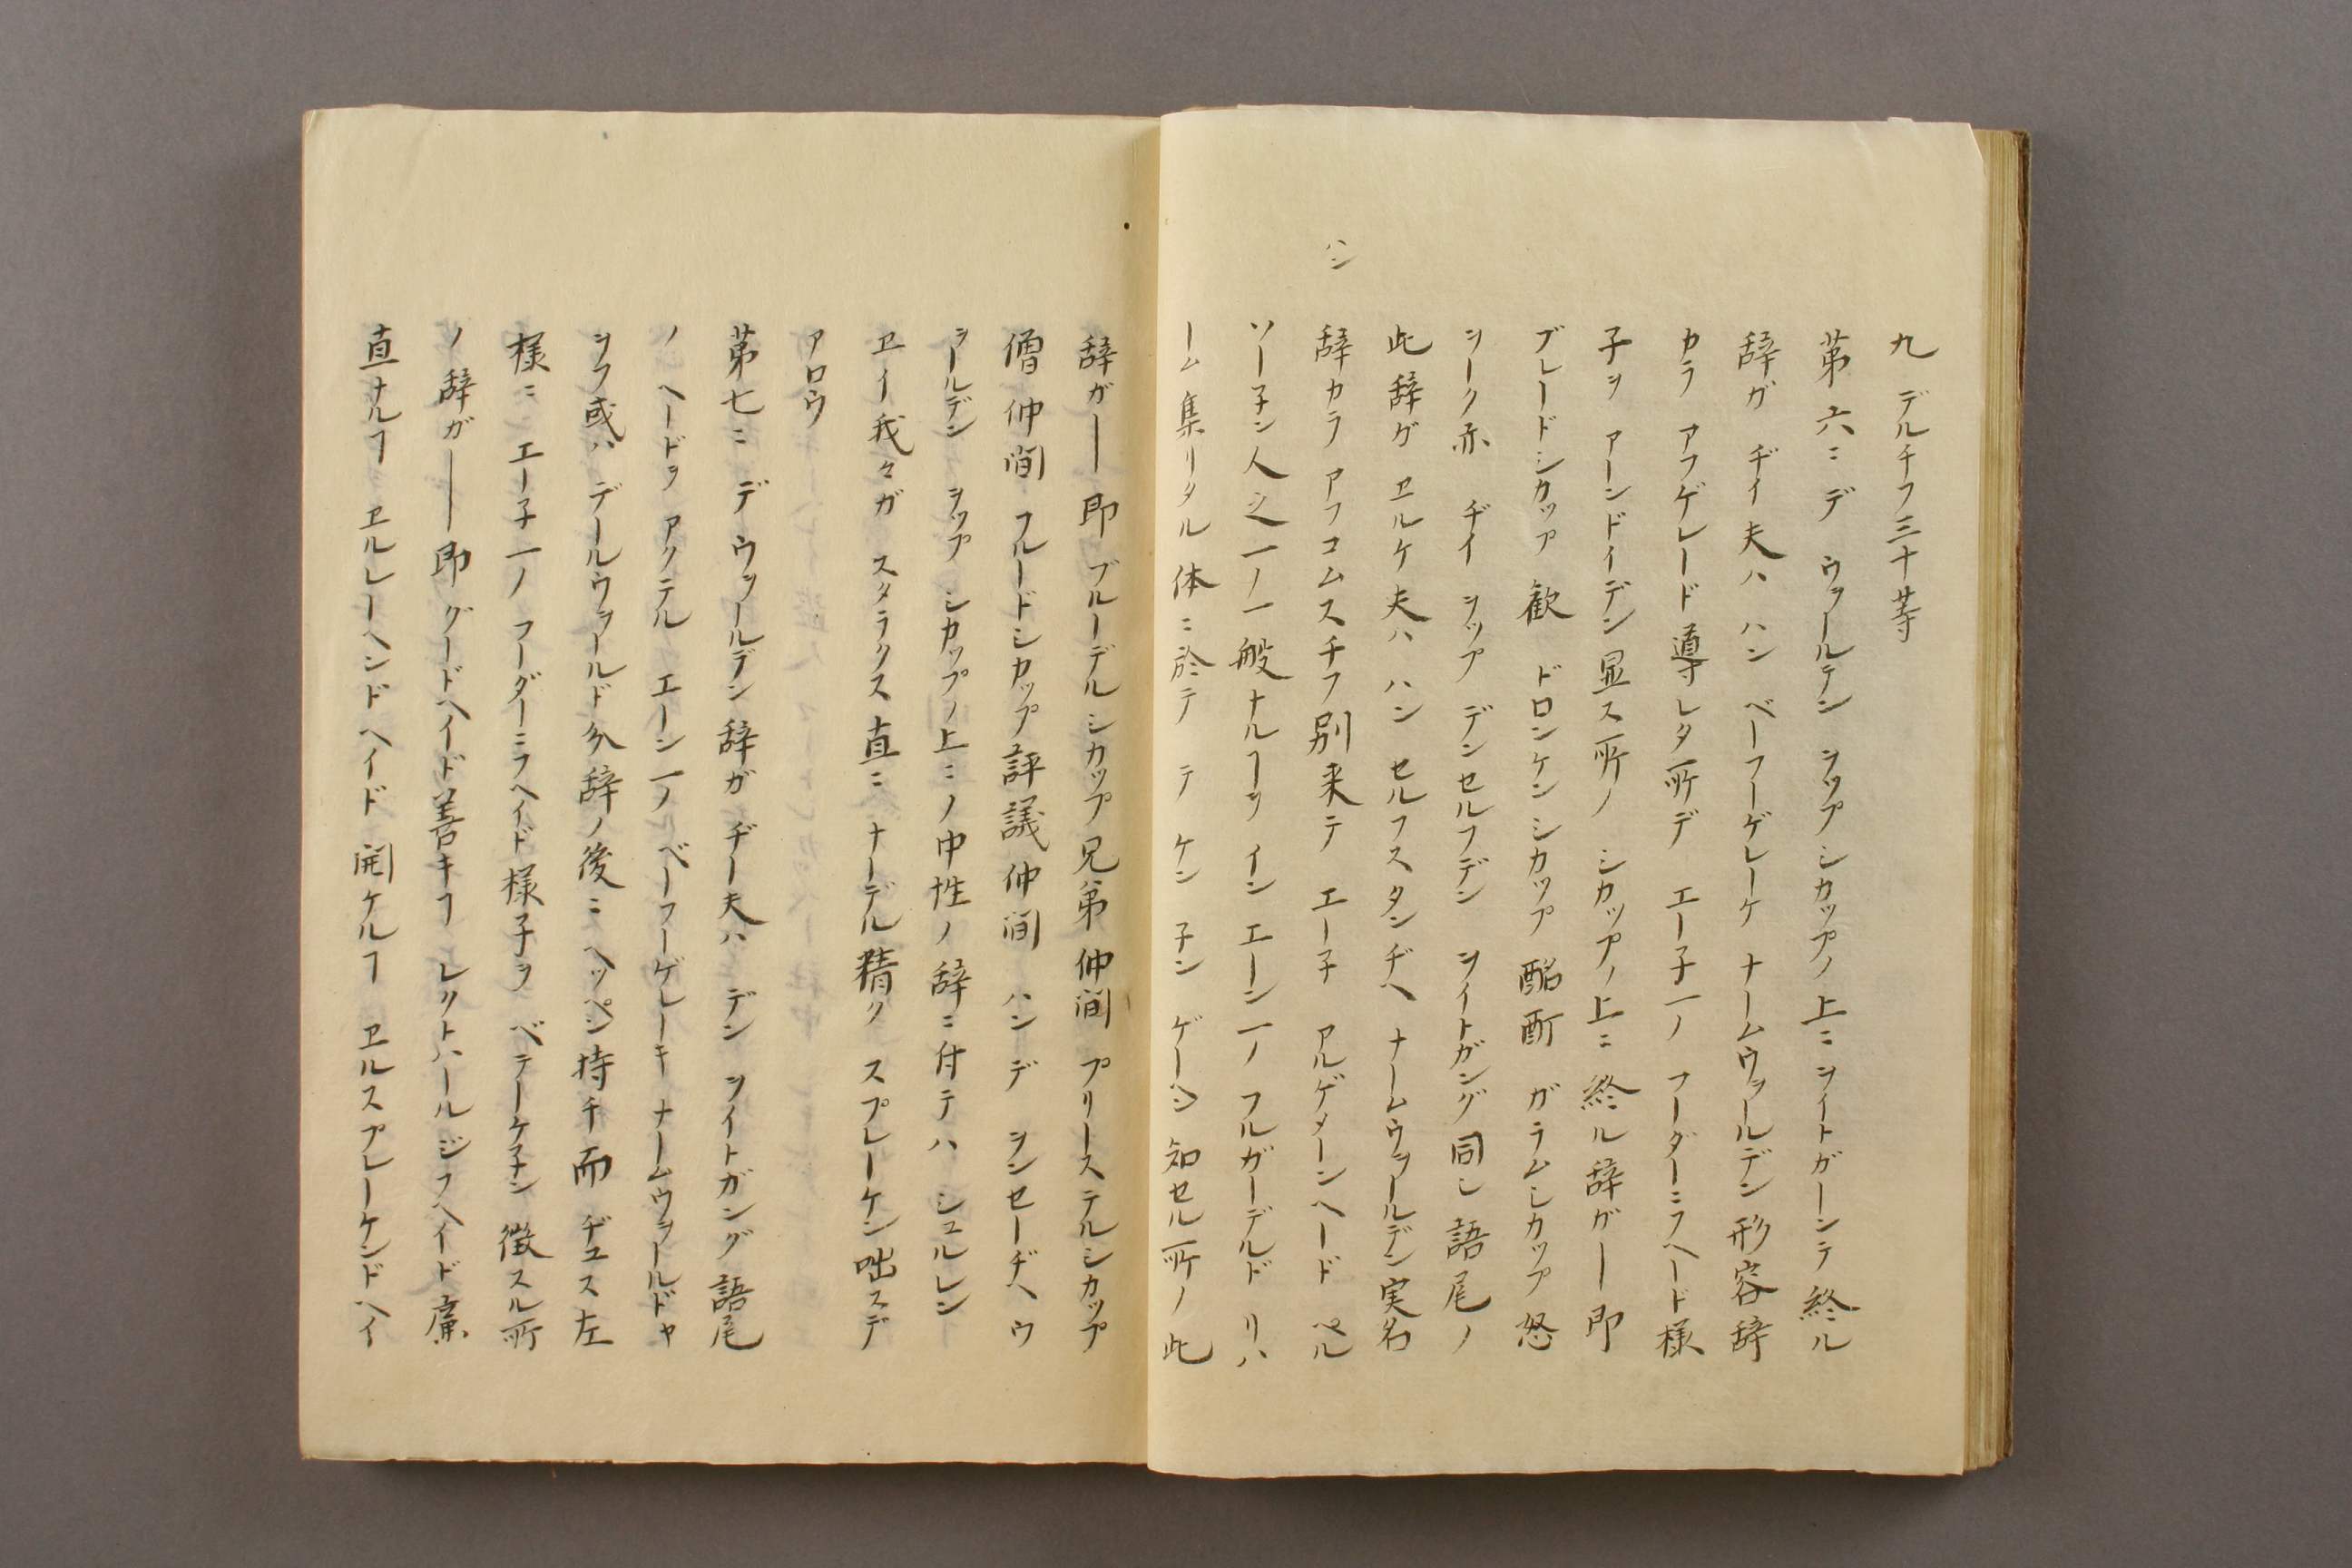 九 デルチフ三十等
第六ニ デ ウヲールテン ヲップ シカップノ上ニ ヲイトガーンテ 終ル
辞ガ ヂイ夫ハ ハン ベーフーゲレーケ ナームウヲールデン 形容辞
カラ アフゲレード 導レタ所デ エー子一ノ フーダーニフヘード様
子ヲ アーンドイデン 显ス所ノ シカップノ上ニ 終ル辞ガ── 即
ブレードシカップ 歓 ドロンケンシカップ 酩酊 ガラムシカップ 怒
ヲーク亦 ヂイ ヲップ デンセルフデン ヲイトガング同シ語尾ノ
此辞ゲ ヱルケ夫ハ ハン セルフスタンヂヘ ナームウヲールデン実名
ハン
辞カラ アフコムスチフ別来テ エー子 アルゲメーンヘード ペル
ソー子ン人之一ノ一般ナルヿヲ イン エーン一ノ フルガーデルド リハ
ーム集リタル体ニ於テ テ ケン子ン ゲーヘン知セル所ノ此
辞ガ── 即 ブルーデルシカップ 兄弟仲間 プリーステルシカップ
僧仲間 フルードシカップ 評議仲間 ハン デ ヲンセーヂヘ ウ
ヲールデン ヲップ シカップノ上ニノ中性ノ辞ニ付テハ シュルレン
ヱイ我々ガ スタラクス直ニ ナーデル精ク スプレーケン咄スデ
アロウ
第七ニ デ ウヲールデン辞ガ ヂー夫ハ デン ヲイトガング語尾
ノ ヘードヲ アクテル エーン一ノ ベーフーゲレーキ ナームウヲールドヤ
ヲフ或ハ デールウヲールド分辞ノ後ニ ヘッペン持チ而 ヂュス左
様ニ エー子一ノ フーダーニフヘイド様子ヲ ベテーケ子ン 徴スル所
ノ辞ガ── 即 グードヘイド善キヿ レクトハールジフヘイド廉
直ナルヿ ヱルレーヘンドヘイド 開ケルヿ ヱルスプレーケンドヘイ